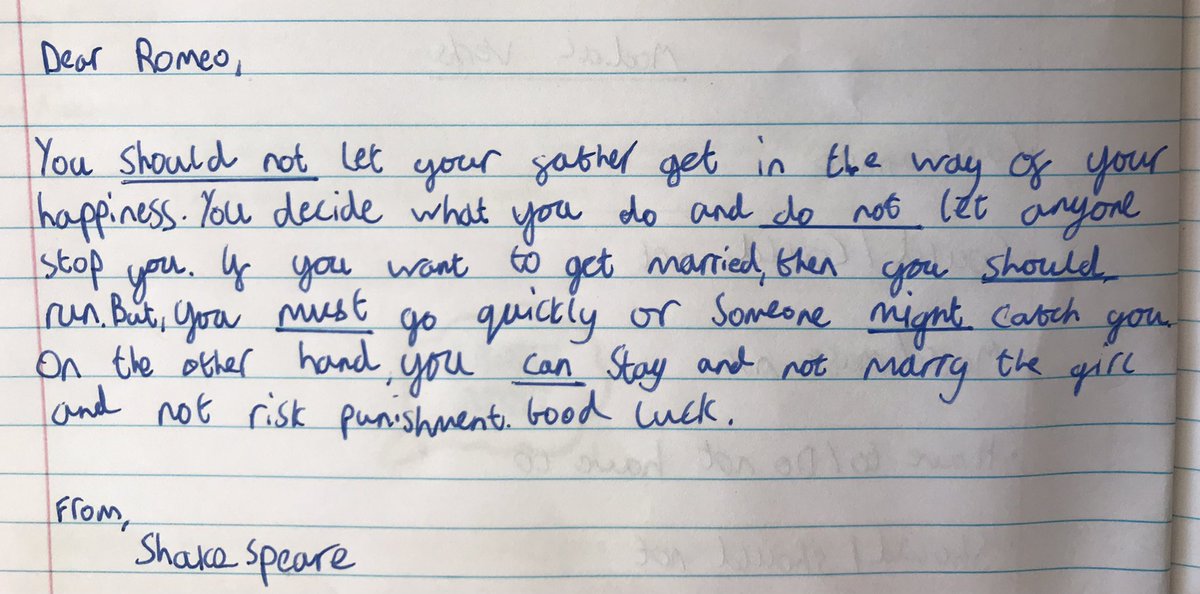 Dear Romeo,
You should not let your father get in the way of your
happiness. You decide what you do and do not let anyone
stop you. If you want to get married, then you should
run. But, you must go quickly or someone might catch you.
On the other hand, you can stay and not marry the girl
and not risk punishment. Good luck.
From,
Shakespeare